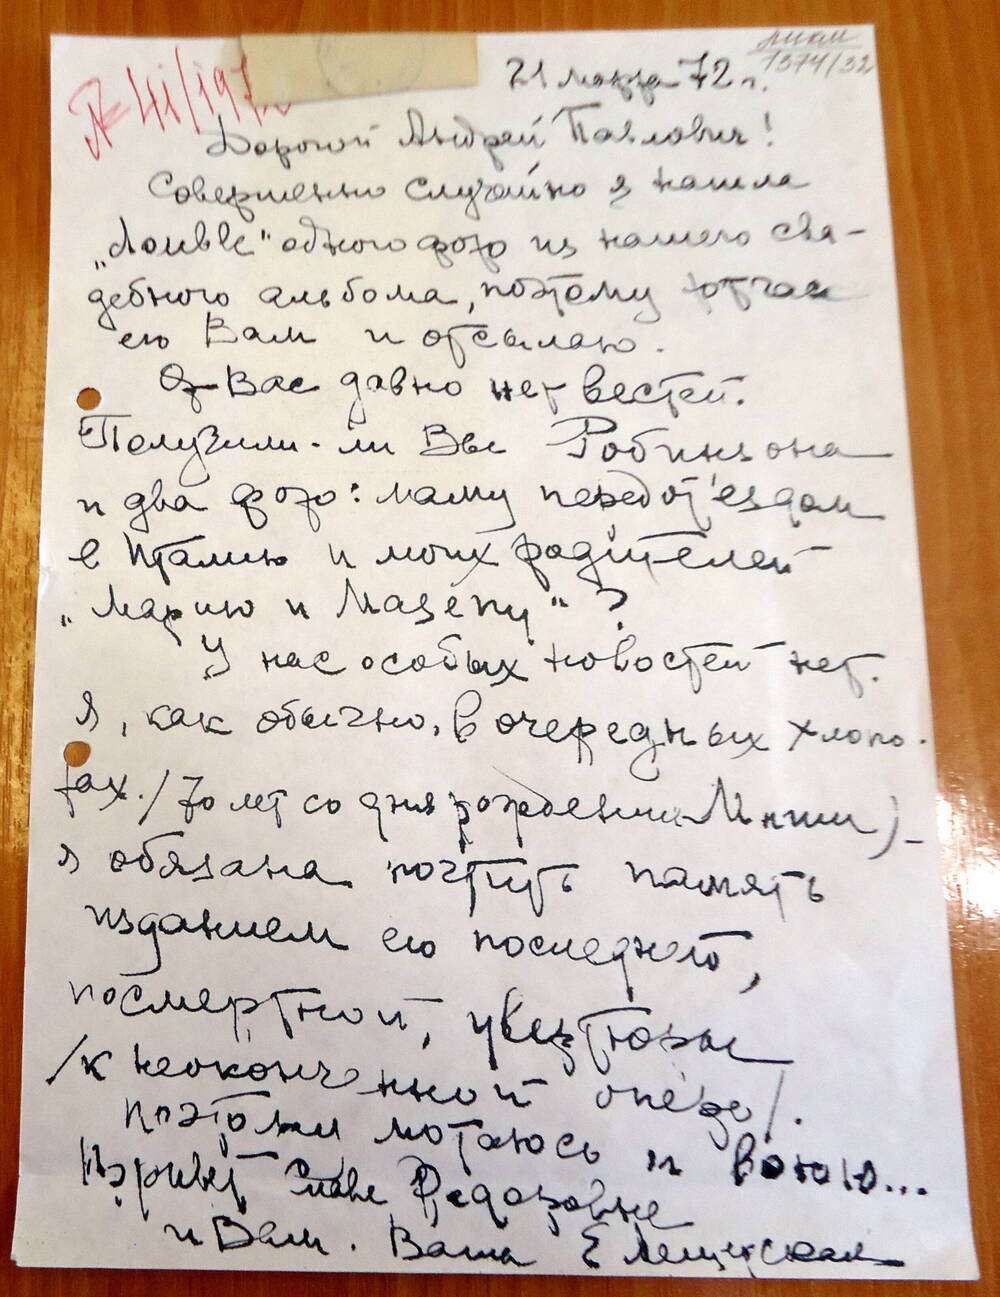 лкам
1374/32
№ 41/197
21 марта 72 г.
Дорогой Андрей Павлович!
Совершенно случайно я нашла
„double" одного фото из нашего сва-
дебного альбома, поэтому
его Вам и отсылаю.
От Вас давно нет вестей.
Получили-ли Вы Робинзона
и два фото: маму перед от'ездом
в Италию и моих родителей
„Марию и Мазепу"?
У нас особых новостей нет.
Я, как обычно, в очередных хлопо-
тах. /70 лет со дня рождения Миши)-
я обязана почтить память
изданием его последней,
посмертной, увертюры
/к неоконченной опере/.
поэтому мотаюсь и воюю...
Привет Славе Федоровне
и Вам. Ваша Е Лещинская